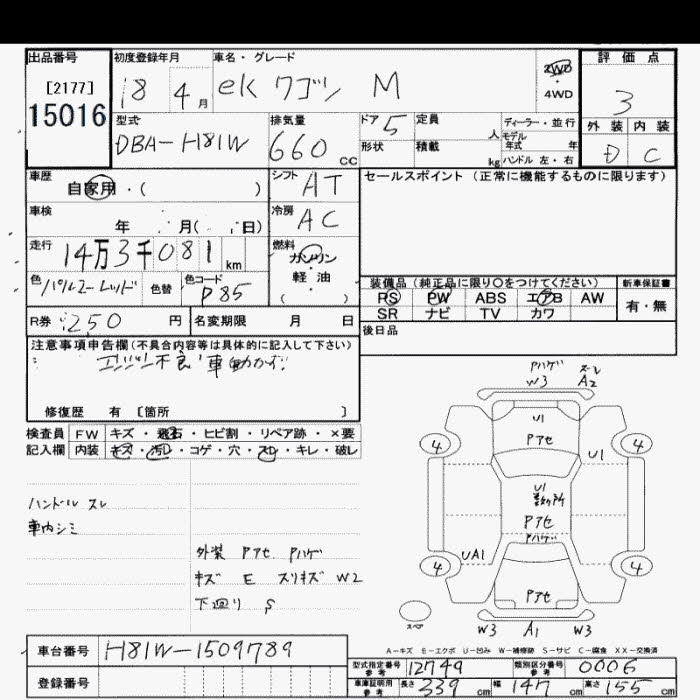 出品番号 初度登録年月 車名・グレード 評価点
[2177] 18 4月 ek ワゴン M 2WD 4WD 3
15016
型式 排気量 ドア 定員 ディーラー・並行 外装 内装
DBA-H81W 660cc 5 人 モデル年式 年 D C
形状 積載 kg ハンドル 左・右
車歴 シフト セールスポイント (正常に機能するものに限ります)
自家用・( ) AT
車検 冷房
年 月( 日) AC
走行 燃料
14万3千081km ガソリン・軽油
色 色替 色コード 装備品 (純正品に限り〇をつけてください) 新車保証書
P85 ( ) PS PW ABS エアB AW 有・無
SR ナビ TV カワ
R券 250円 名変期限 月 日 後日品
注意事項申告欄 (不具合内容等は具体的に記入して下さい)
エンジン不良 車動かず
修復歴 有 [箇所 ]
検査員 FW キズ・飛石・ヒビ割・リペア跡・×要
記入欄 内装 キズ・汚レ・コゲ・穴・スレ・キレ・破レ
ハンドル スレ
車内シミ
外装 Pアセ Pハゲ
キズ E スリキズ W2
下廻り S
Pハゲ スレ
W3 A2
U1
Pアセ
4 4
U1
U1
Pアセ
Pハゲ
UA1
4 4
Pアセ
スペア
W3 A1 W3
A-キズ E-エクボ U-凹み W-補修跡 S-サビ C-腐食 XX-交換済
車台番号 H81W-1509789
型式指定番号 参考 12749 類別区分番号 参考 0006
登録番号
車庫証明用 参考 長さ 339cm 幅 147cm 高さ 155cm